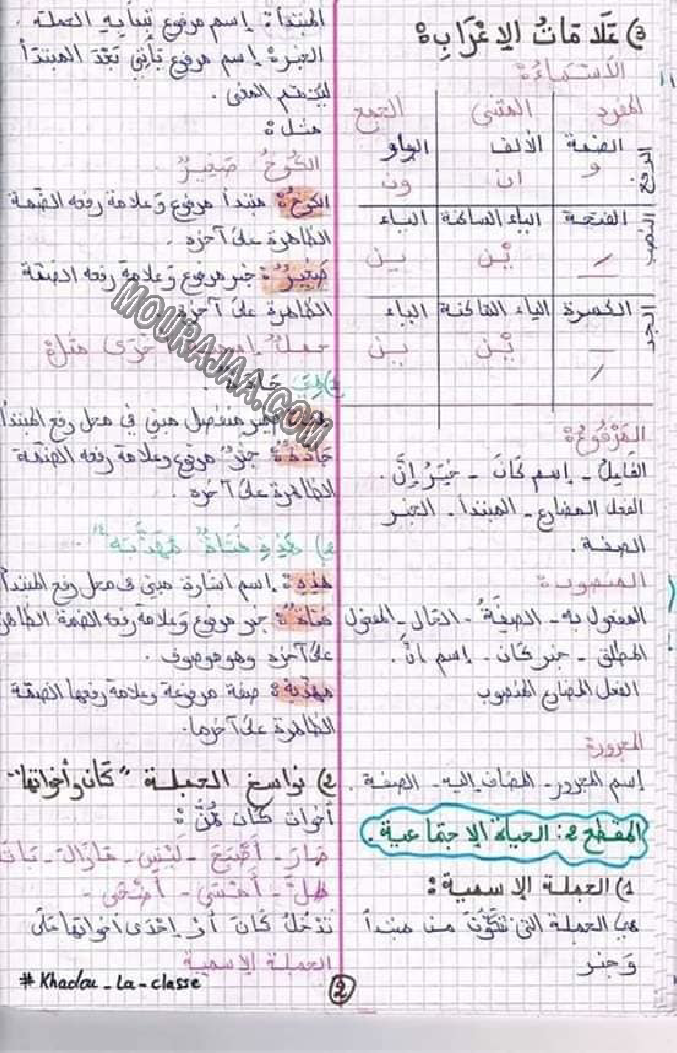 3) عَلَامَاتُ الإِعْرَابِ:
الأَسْمَاءُ:
المفرد المثنى الجمع
الرفع الضمة الألف الواو
و ان ون
النصب الفتحة الياء الساكنة الياء
يْن ين
الجر الكسرة الياء الساكنة الياء
يْن ين
المَرْفُوعُ:
الفَاعِلُ - إسم كَانَ - خبَرُ إنَّ.
الفعل المضارع - المبتدأ - الخبر
الصفة.
المنصوب:
المفعول به - الصِفَةُ - الحال - المفعول
المطلق - خبر كان - إسم انَّ.
الفعل المضارع المنصوب
المجرورة
إسم المجرور - المضاف إليه - الصفة.
المقطع 2: الحياة الإجتماعية.
1) الجملة الإسمية:
هي الجملة التي تتكَوَّنُ من مبتدأ
وَخبر
المبتدأ: إسم مرفوع نبدأ به الجملة.
الخبر: إسم مرفوع يَأتِي بَعْدَ المبتدَأ
ليتمم المعنى.
مثل:
الكُوخُ صَغِيرٌ
الكوخُ: مبتدأ مرفوع وَعلامة رفعه الضّمة
الظاهرة على آخره.
صَغِيرٌ: خبر مرفوع وَعلامة رفعه الضمّة
الظاهرة على آخره.
جملة أخرى مثل:
1) هِيَ
ضمير منفصل مبني في محل رفع المبتدأ
خبرٌ مرفوع وعلامة رفعه الضمّة
الظاهرة على آخره.
2) هَذِهِ فَتَاةٌ مُهَذَّبَةٌ
هذه: إسم اشارة مبني في محل رفع المبتدأ
فتاةٌ: خبر مرفوع وَعلامة رفعه الضمة الظاهرة
على آخره وهو موصوف.
مهذبة: صفة مرفوعة وعلامة رفعها الضمّة
الظاهرة على آخرها.
2) نواسخ الجملة "كَانَ وأخواتها"
أخوات كَانَ هُنَّ:
صَارَ - أَصْبَحَ - لَيْسَ - مَازَالَ - بَاتَ
ظَلَّ - أَمْسَى - أَضْحَى -
تَدْخُلُ كَانَ أَوْ إِحْدَى أخواتها عَلَى
الجملة الإسمية
#Khadou_La_classe
2
MOURAJAA.COM